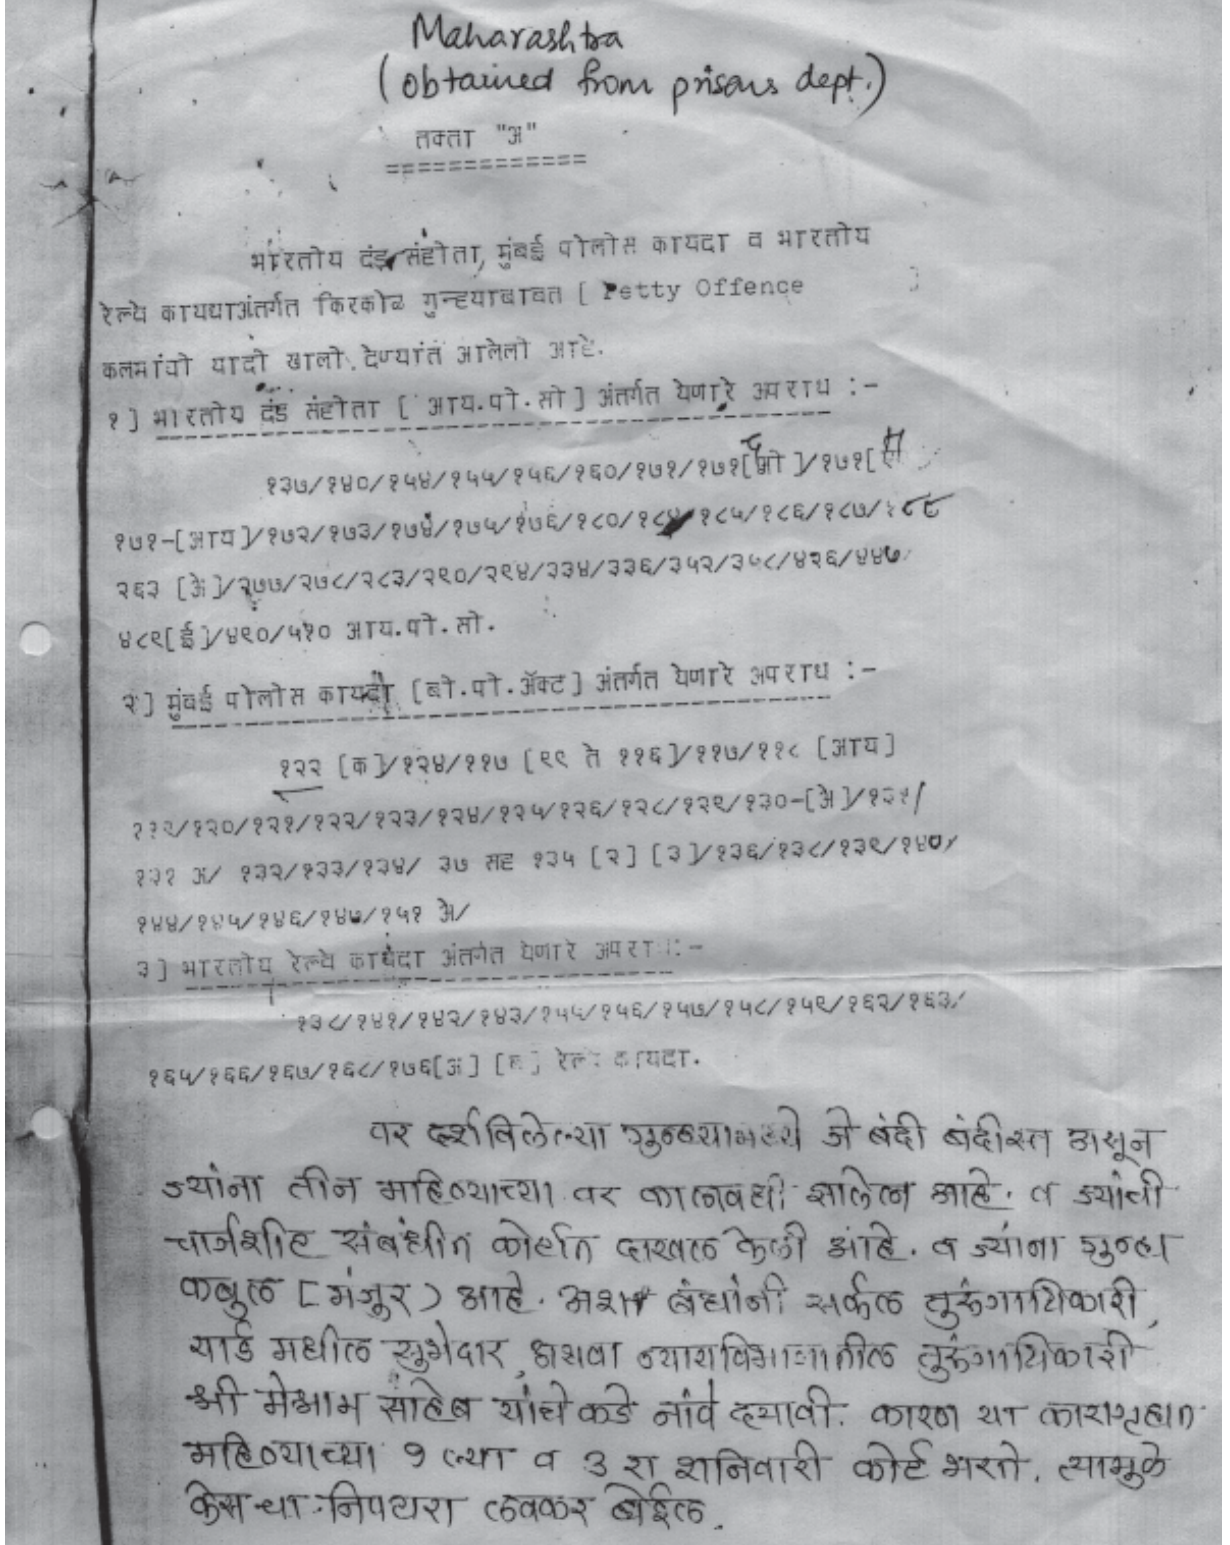 Maharashtra
(obtained from prisons dept.)
तक्ता "अ"
भारतीय दंड संहीता, मुंबई पोलीस कायदा व भारतीय
रेल्वे कायद्याअंतर्गत किरकोळ गुन्हयाबाबत [ Petty Offence ]
कलमांची यादी खाली देण्यांत आलेली आहे.
१] भारतीय दंड संहीता [ आय.पी.सी ] अंतर्गत येणारे अपराध :-
१३७/१४०/१५४/१५५/१५६/१६०/१७१/१७१[ ]/१७१[ ]
१७१-[आय]/१७२/१७३/१७४/१७५/१७६/१८०/१८४/१८५/१८६/१८७/१८८
२६३ [अे]/२७७/२७८/२८३/२९०/२९४/३३४/३३६/३५२/३५८/४२६/४४७/
४८९[ई]/४९०/५१० आय.पी.सी.
२] मुंबई पोलीस कायदा [बी.पी.अॅक्ट] अंतर्गत येणारे अपराध :-
१२२ [क]/१२४/११७ [९९ ते ११६]/११७/११८ [आय]
११९/१२०/१२१/१२२/१२३/१२४/१२५/१२६/१२८/१२९/१३०-[अे]/१३१/
१३१ अ/ १३२/१३३/१३४/ ३७ सह १३५ [२] [३]/१३६/१३८/१३९/१४०/
१४४/१४५/१४६/१४७/१५१ अे/
३] भारतीय रेल्वे कायदा अंतर्गत येणारे अपराध:-
१३८/१४१/१४२/१४३/१५५/१५६/१५७/१५८/१५९/१६२/१६३/
१६५/१६६/१६७/१६८/१७६[अ] [ब] रेल्वे कायदा.
वर दर्शविलेल्या गुन्ह्यामध्ये जे बंदी बंदीस्त असून
ज्यांना तीन महिण्याच्या वर कालावधी झालेला आहे. व ज्यांची
चार्जशीट संबंधीत कोर्टात दाखल केली आहे. व ज्यांना गुन्हा
कबुल [मंजुर) आहे. अशा बंद्यांनी सर्कल तुरुंगाधिकारी,
यार्ड मधील सुभेदार, अथवा न्यायविभागातील तुरुंगाधिकारी
श्री मेश्राम साहेब यांचे कडे नांवे द्यावी. कारण या कारागृहात
महिण्याच्या १ ल्या व ३ रा शनिवारी कोर्ट भरते. त्यामुळे
केसचा निपटारा लवकर होईल.